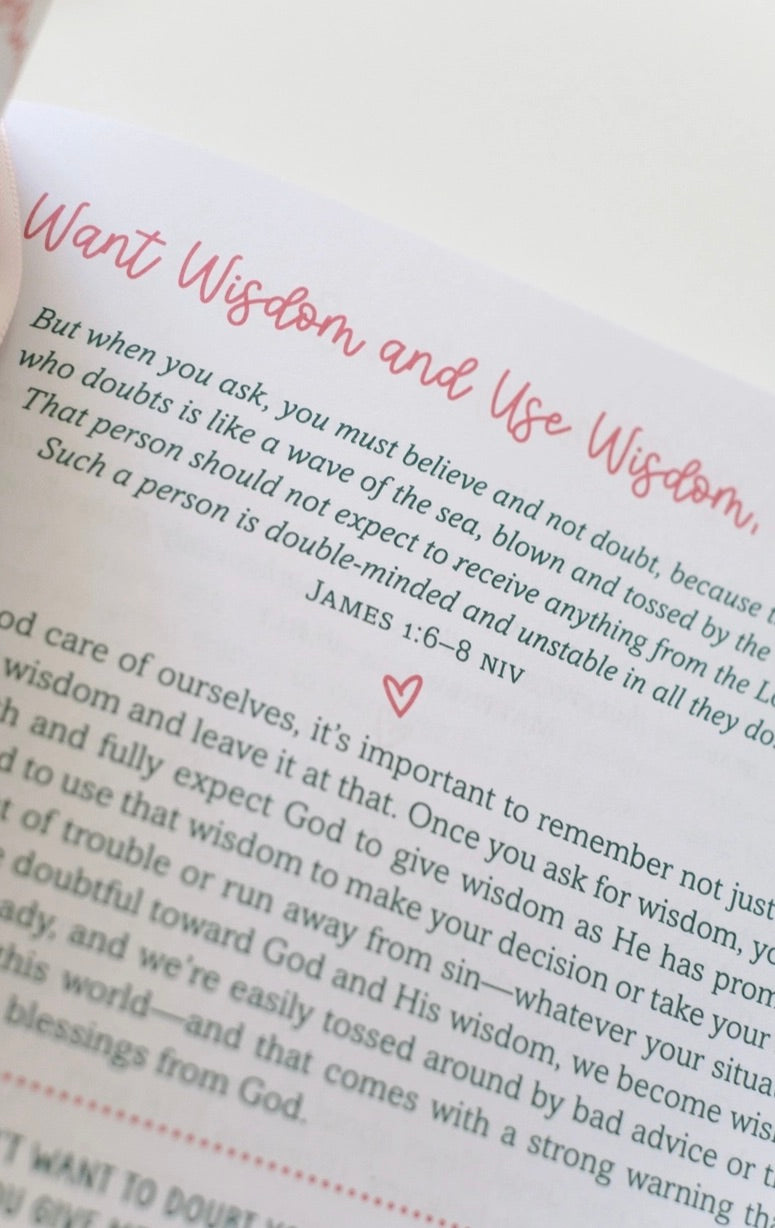 Want Wisdom and Use Wisdom,
But when you ask, you must believe and not doubt, because
who doubts is like a wave of the sea, blown and tossed by the
That person should not expect to receive anything from the
Such a person is double-minded and unstable in all they do.
JAMES 1:6–8 NIV
care of ourselves, it's important to remember not just
wisdom and leave it at that. Once you ask for wisdom,
and fully expect God to give wisdom as He has
to use that wisdom to make your decision or take your
of trouble or run away from sin—whatever your
doubtful toward God and His wisdom, we become
and we're easily tossed around by bad advice or
this world—and that comes with a strong warning
blessings from God.
WANT TO DOUBT
GIVE